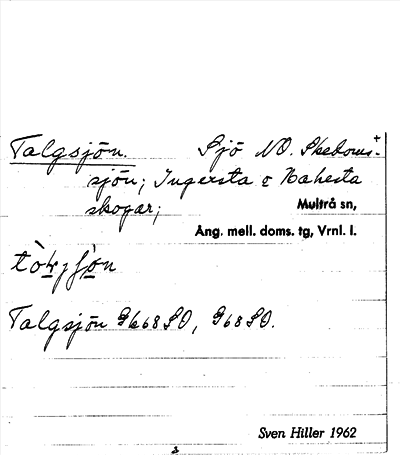 Talgsjön. Sjö NO. Skedoms-
sjön; Ingersta o Nahesta
skogar; Multrå sn,
Ång. mell. doms. tg, Vrnl. l.
Talgsjön Gk68SO, G68SO.
Sven Hiller 1962